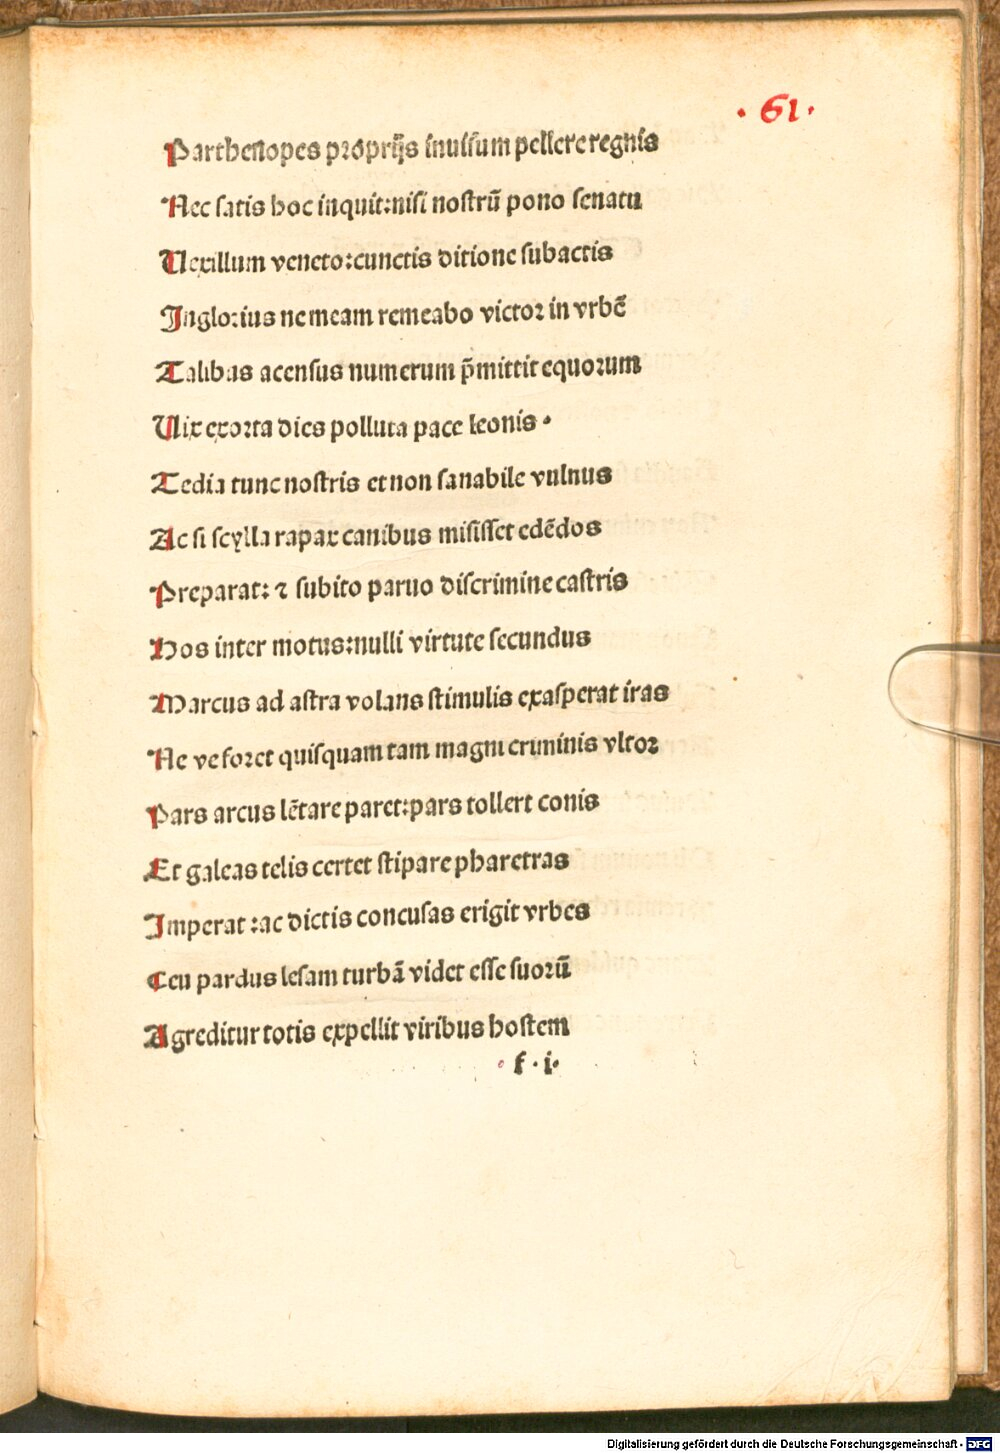 · 61 ·
Parthenopes proprijs inuisum pellere regnis
Nec satis hoc inquit:nisi nostrū pono senatu
Uexillum veneto:cunctis ditione subactis
Inglorius ne meam remeabo victor in vrbē
Talibus acensus numerum p̄mittit equorum
Uix exorta dies polluta pace leonis ·
Tedia tunc nostris et non sanabile vulnus
Ac si scylla rapax canibus misisset edēdos
Preparat: ⁊ subito paruo discrimine castris
Hos inter motus:nulli virtute secundus
Marcus ad astra volans stimulis exasperat iras
Ne ve foret quisquam tam magni criminis vltor
Pars arcus lētare paret:pars tollert conis
Et galeas telis certet stipare pharetras
Imperat :ac dictis concusas erigit vrbes
Ceu pardus lesam turbā videt esse suorū
Agreditur totis expellit viribus hostem
f · i·
Digitalisierung gefördert durch die Deutsche Forschungsgemeinschaft - DFG